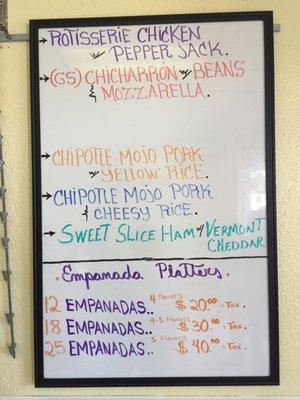 → ROTISSERIE CHICKEN
w/ PEPPER JACK.
→ (GS) CHICHARRÓN w/ BEANS
& MOZZARELLA.
→ CHIPOTLE MOJO PORK
w/ YELLOW RICE.
→ CHIPOTLE MOJO PORK
& CHEESY RICE.
→ SWEET SLICE HAM w/ VERMONT
CHEDDAR
· Empanada Platters ·
12 EMPANADAS.. 4 Flavors $20.00 +Tax.
18 EMPANADAS.. 4-5 Flavors $30.00 +Tax.
25 EMPANADAS.. 5 Flavors $40.00 +Tax.